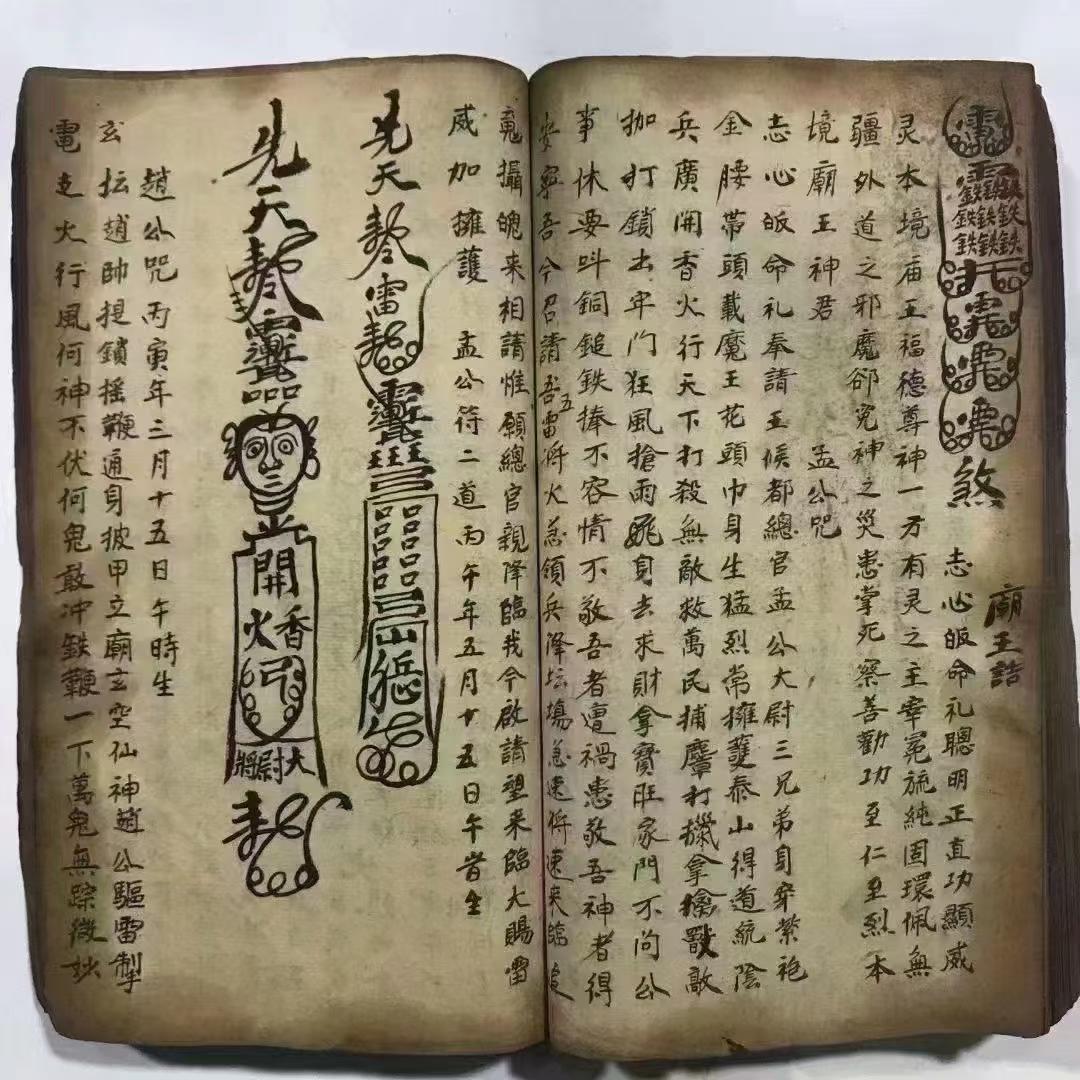 鉄鉄鉄
鉄鉄鉄
煞
廟王誥
志心皈命礼聰明正直功顯威
灵本境庙王福德尊神一方有灵之主宰冕旒純固環佩無
疆外道之邪魔卻究神之災患掌死察善勸功至仁至烈本
境廟王神君
孟公咒
志心皈命礼奉請王候都總官孟公大尉三兄弟身穿紫袍
金腰帶頭載魔王花頭巾身生猛烈常擁護泰山得道統陰
兵廣開香火行天下打殺無敵救萬民捕麞打獵拿擒敵
枷打鎖出牢门狂風搶雨身去求財拿寶旺家門不问公
事休要呌銅鎚鉄捧不容情不敬吾者遭禍患敬吾神者得
安寧吾今召請五雷将火急領兵降坛塲急速将速来臨追
䰟攝魄来相請惟願總官親降臨我今啟請望来臨大賜雷
威加擁護
孟公符二道丙午年五月十五日午时生
先天
雷
山
先天
開
香火
大尉將
趙公咒丙寅年三月十五日午時生
玄坛趙帥提鎖摇鞭通身披甲立廟玄空仙神趙公驅雷掣
電走火行風何神不伏何鬼敢冲鉄鞭一下萬鬼無踪微妙